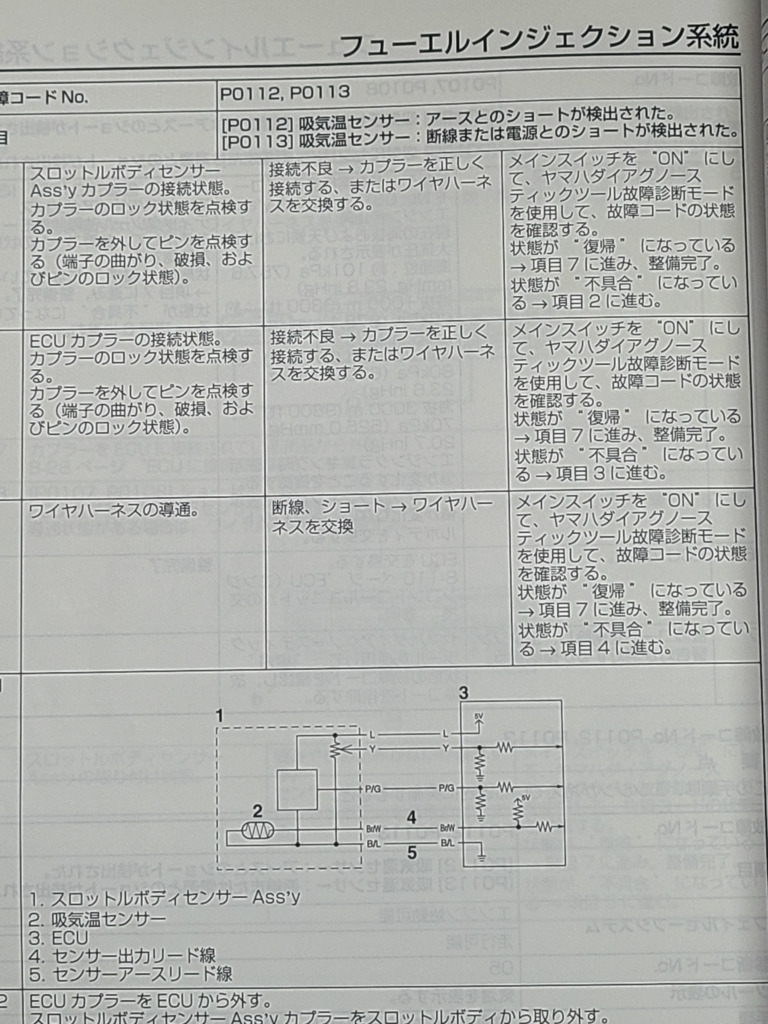 フューエルインジェクション系統
障コードNo.
P0112, P0113
目
[P0112] 吸気温センサー：アースとのショートが検出された。
[P0113] 吸気温センサー：断線または電源とのショートが検出された。
スロットルボディセンサー
Ass'y カプラーの接続状態。
カプラーのロック状態を点検す
る。
カプラーを外してピンを点検す
る（端子の曲がり、破損、およ
びピンのロック状態）。
接続不良 → カプラーを正しく
接続する、またはワイヤハーネ
スを交換する。
メインスイッチを “ON” にし
て、ヤマハダイアグノース
ティックツール故障診断モード
を使用して、故障コードの状態
を確認する。
状態が “復帰” になっている
→ 項目 7 に進み、整備完了。
状態が “不具合” になってい
る → 項目 2 に進む。
ECU カプラーの接続状態。
カプラーのロック状態を点検す
る。
カプラーを外してピンを点検す
る（端子の曲がり、破損、およ
びピンのロック状態）。
接続不良 → カプラーを正しく
接続する、またはワイヤハーネ
スを交換する。
メインスイッチを “ON” にし
て、ヤマハダイアグノース
ティックツール故障診断モード
を使用して、故障コードの状態
を確認する。
状態が “復帰” になっている
→ 項目 7 に進み、整備完了。
状態が “不具合” になってい
る → 項目 3 に進む。
ワイヤハーネスの導通。
断線、ショート → ワイヤハー
ネスを交換
メインスイッチを “ON” にし
て、ヤマハダイアグノース
ティックツール故障診断モード
を使用して、故障コードの状態
を確認する。
状態が “復帰” になっている
→ 項目 7 に進み、整備完了。
状態が “不具合” になってい
る → 項目 4 に進む。
1
3
5V
L L
Y Y
P/G P/G
5V
2
4
Br/W Br/W
B/L B/L
5
1. スロットルボディセンサー Ass'y
2. 吸気温センサー
3. ECU
4. センサー出力リード線
5. センサーアースリード線
2
ECU カプラーを ECU から外す。
スロットルボディセンサー Ass'y カプラーをスロットルボディから取り外す。